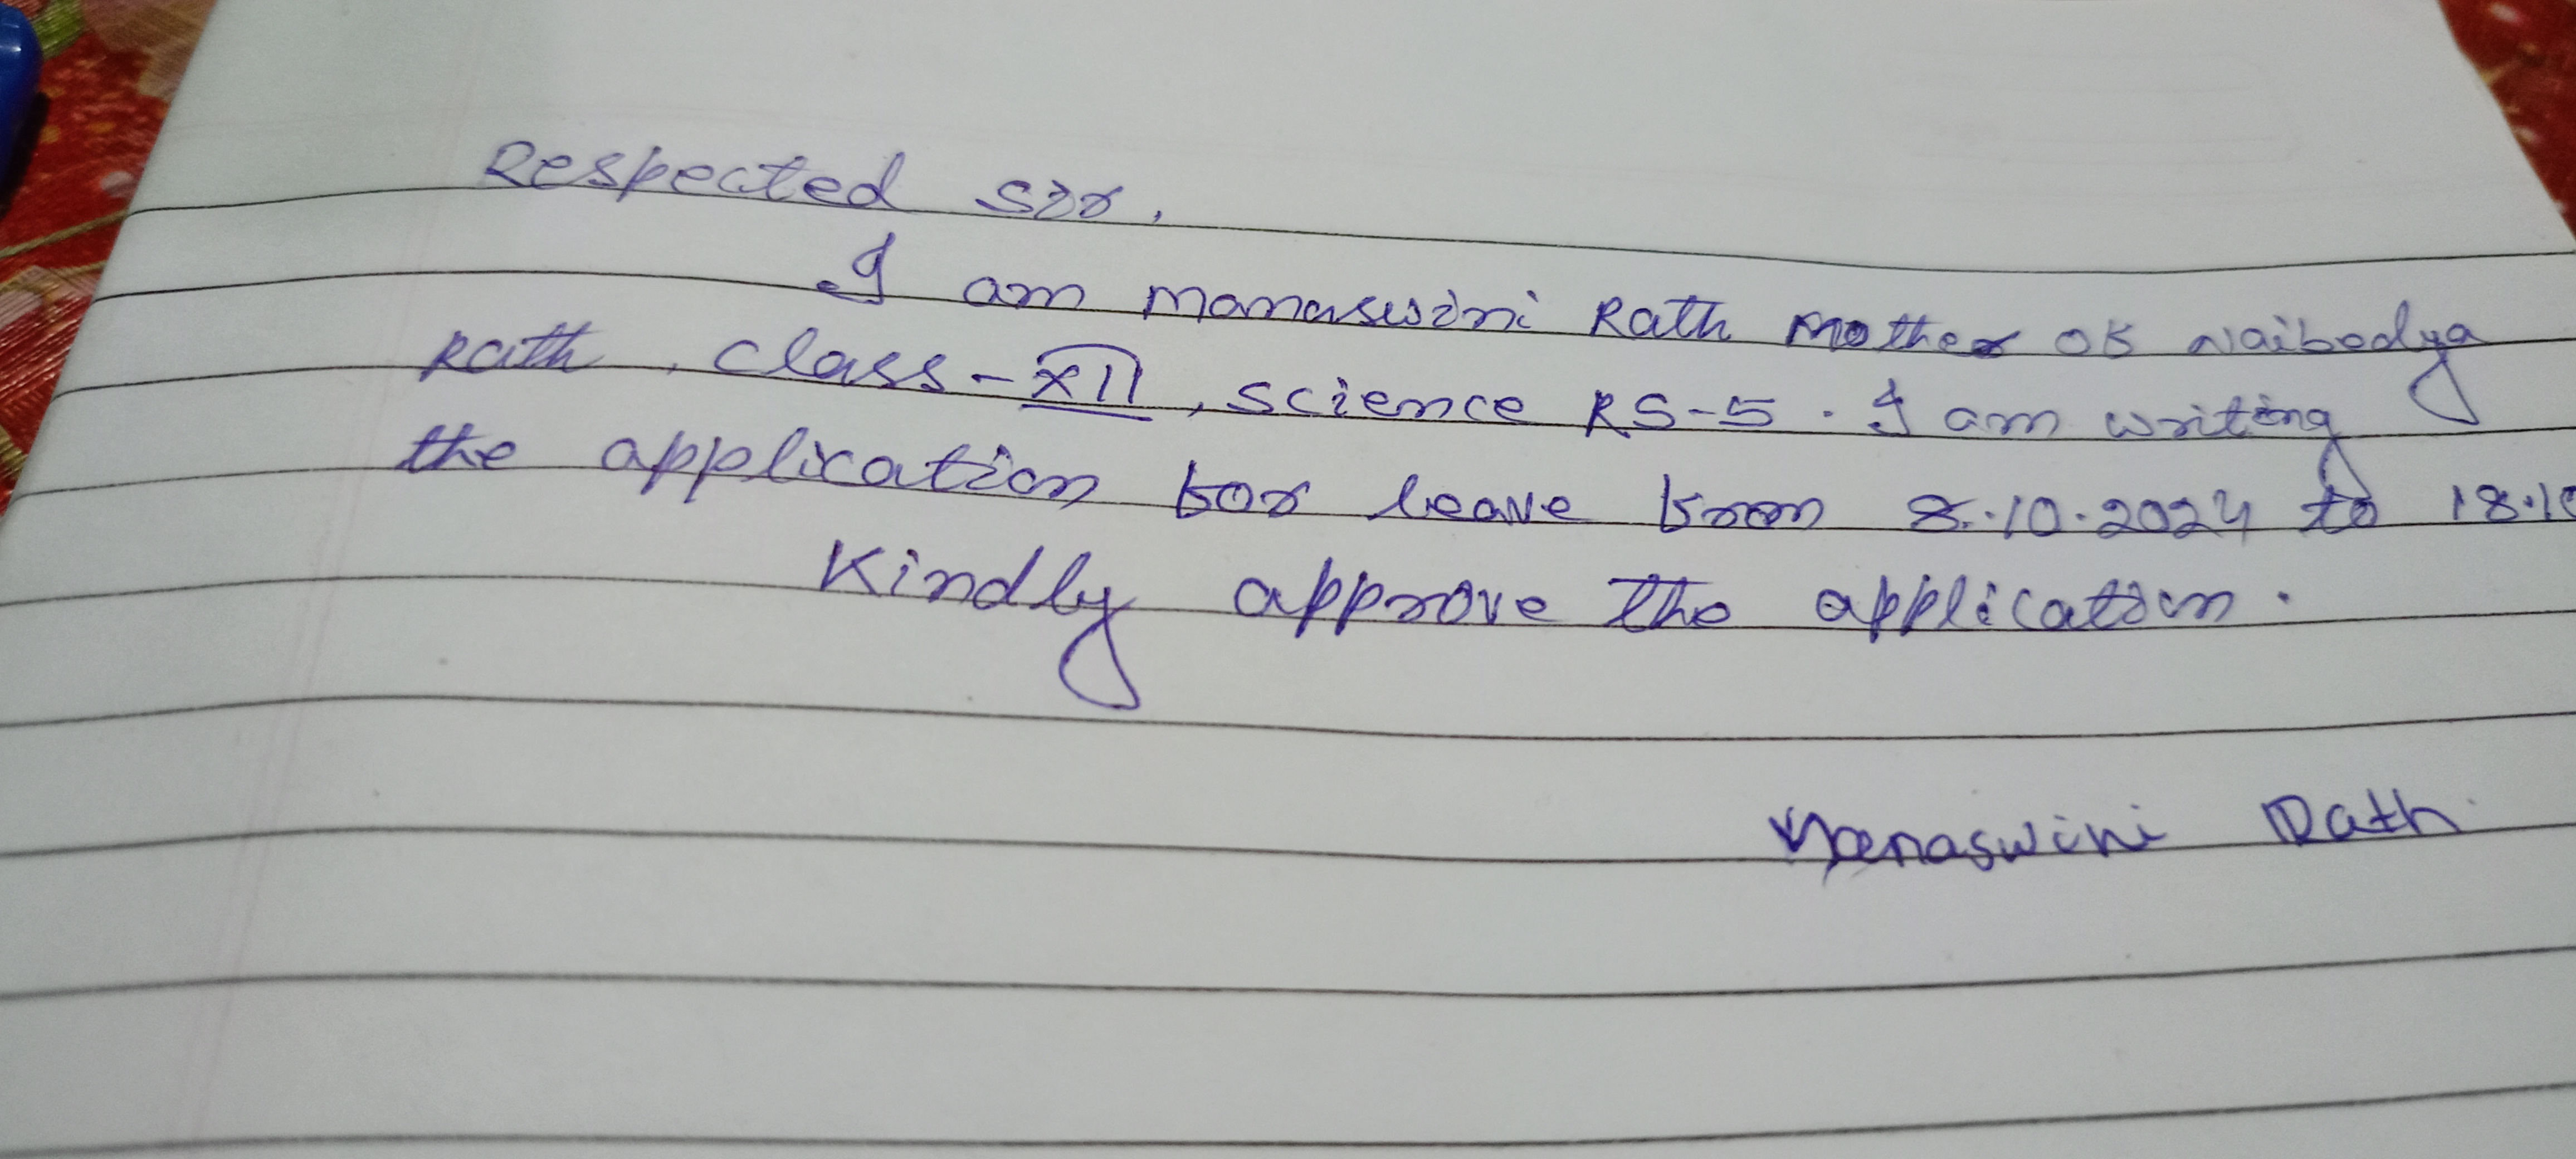 Respected Sir,
I am Manaswini Rath Mother of Naibedya
Rath, Class - XII, Science RS-5. I am writing
the application for leave from 8.10.2024 to 18.10
Kindly approve the application.
Manaswini Rath